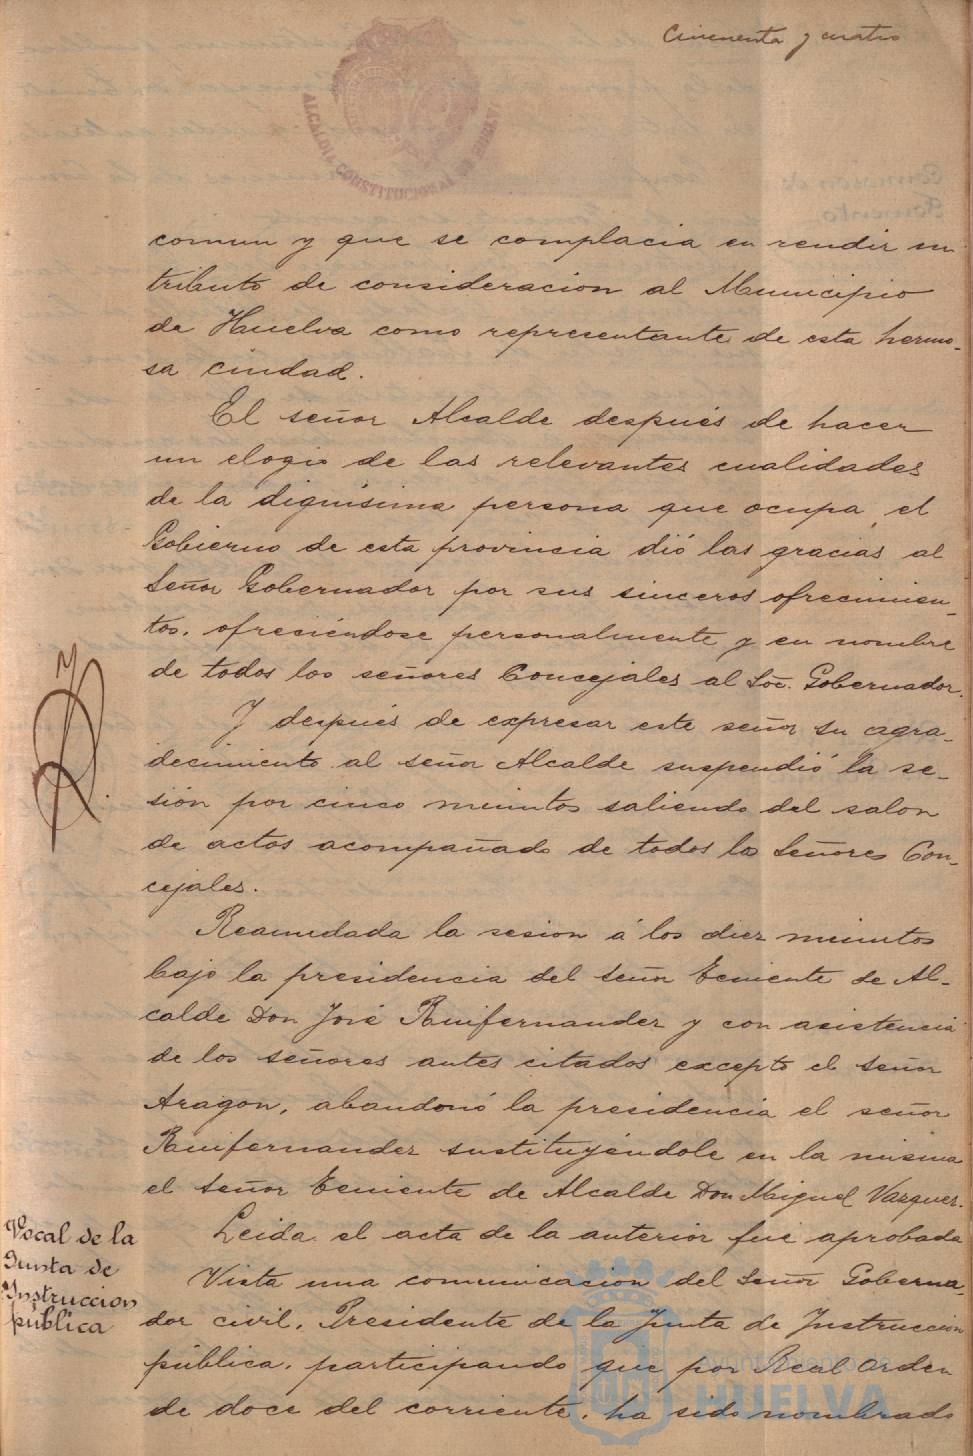 Cincuenta y cuatro
ALCALDIA CONSTITUCIONAL DE HUELVA
comun y que se complacia en rendir un
tributo de consideracion al Municipio
de Huelva como representante de esta hermo-
sa ciudad.
El señor Alcalde después de hacer
un elogio de las relevantes cualidades
de la dignísima persona que ocupa el
Gobierno de esta provincia dió las gracias al
Señor Gobernador por sus sinceros ofrecimien-
tos, ofreciéndose personalmente y en nombre
de todos los señores Concejales al Sor. Gobernador.
Y después de expresar este señor su agra-
decimiento al señor Alcalde suspendió la se-
sión por cinco minutos saliendo del salon
de actos acompañado de todos los Señores Con-
cejales.
Reanudada la sesion á los diez minutos
bajo la presidencia del señor Teniente de Al-
calde Don José Ruifernandez y con asistencia
de los señores antes citados excepto el señor
Aragon, abandonó la presidencia el señor
Ruifernandez sustituyéndole en la misma
el señor Teniente de Alcalde Don Miguel Vazquez.
Leida el acta de la anterior fué aprobada
Vocal de la
Junta de
Instruccion
pública
Vista una comunicacion del Señor Goberna-
dor civil, Presidente de la Junta de Instruccion
pública, participando que por Real Orden
de doce del corriente, ha sido nombrado
Ayuntamiento de
HUELVA